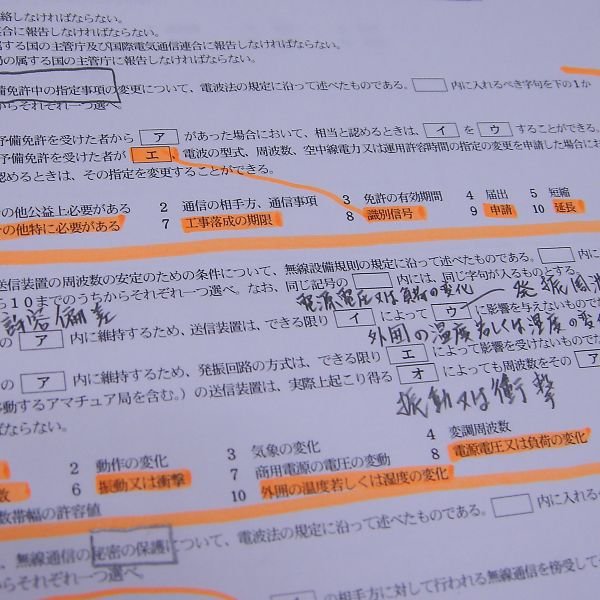 絡しなければならない。
合に報告しなければならない。
属する国の主管庁及び国際電気通信連合に報告しなければならない。
の属する国の主管庁に報告しなければならない。
備免許中の指定事項の変更について、電波法の規定に沿って述べたものである。 内に入れるべき字句を下の1か
からそれぞれ一つ選べ。
予備免許を受けた者から ア があった場合において、相当と認めるときは、 イ を ウ することができる。
予備免許を受けた者が エ 、電波の型式、周波数、空中線電力又は運用許容時間の指定の変更を申請した場合にお
認めるときは、その指定を変更することができる。
の他公益上必要がある 2 通信の相手方、通信事項 3 免許の有効期間 4 届出 5 短縮
の他特に必要がある 7 工事落成の期限 8 識別信号 9 申請 10 延長
送信装置の周波数の安定のための条件について、無線設備規則の規定に沿って述べたものである。 内
ら10までのうちからそれぞれ一つ選べ。なお、同じ記号の 内には、同じ字句が入るものとする。
電源電圧又は負荷の変化
発振周波
許容偏差
の ア 内に維持するため、送信装置は、できる限り イ によって ウ に影響を与えないものでな
外囲の温度若しくは湿度の変化
の ア 内に維持するため、発振回路の方式は、できる限り エ によって影響を受けないものでな
移動するアマチュア局を含む。)の送信装置は、実際上起こり得る オ によっても周波数をその ア
ばならない。
振動又は衝撃
2 動作の変化 3 気象の変化 4 変調周波数
数 6 振動又は衝撃 7 商用電源の電圧の変動 8 電源電圧又は負荷の変化
数帯幅の許容値 10 外囲の温度若しくは湿度の変化
、無線通信の秘密の保護について、電波法の規定に沿って述べたものである。 内に入れる
からそれぞれ一つ選べ。
の相手方に対して行われる無線通信を傍受して